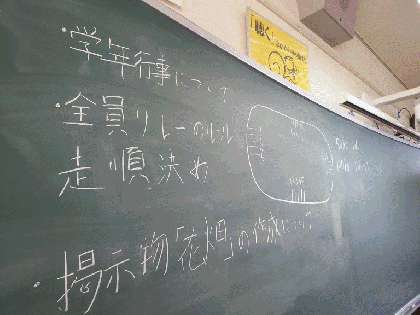 ・学年行事について
・全員リレーのルール
走順決め
・掲示物「花畑」の作成について
「聴く」